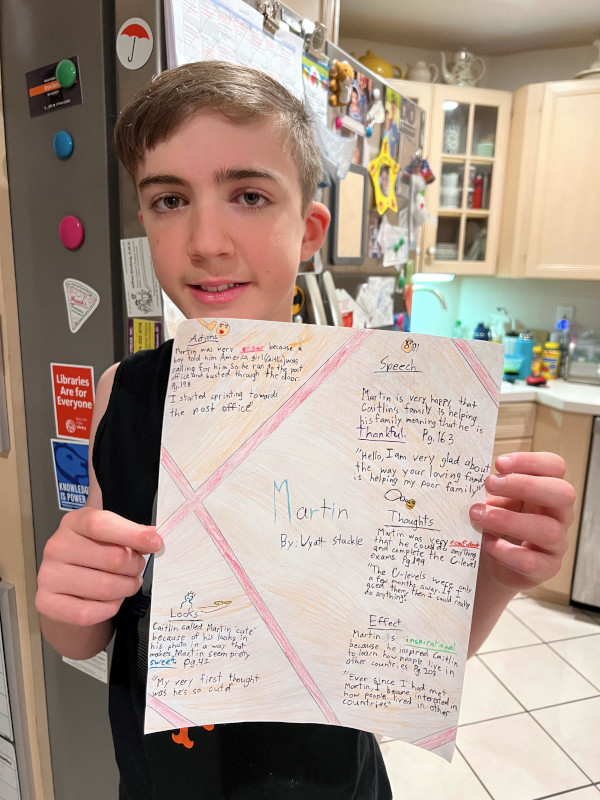 Actions
Martin was very eager because a
boy told him America girl (Caitlin) was
calling for him. So he ran to the post
office and busted through the door.
Pg.198
I started sprinting towards
the post office.
Speech
Martin is very happy that
Caitlin's family is helping
his family meaning that he is
Thankful. Pg.163
"Hello, I am very glad about
the way your loving family
is helping my poor family"
Martin
By: Wyatt Stackle
Thoughts
Martin was very confident
that he could do anything
and complete the O-level
exams. Pg.199
"The O-levels were only
a few months away. If I
aced them, then I could really
do anything."
Looks
Caitlin called Martin "cute"
because of his looks in
his photo in a way that
makes Martin seem pretty
sweet. Pg.42
"My very first thought
was he's so cute"
Effect
Martin is inspirational
because he inspired Caitlin
to learn how people live in
other countries. Pg.205
"Ever since I had met
Martin, I became interested in
how people lived in other
countries"
Libraries
Are for
Everyone
KNOWLEDGE
IS POWER